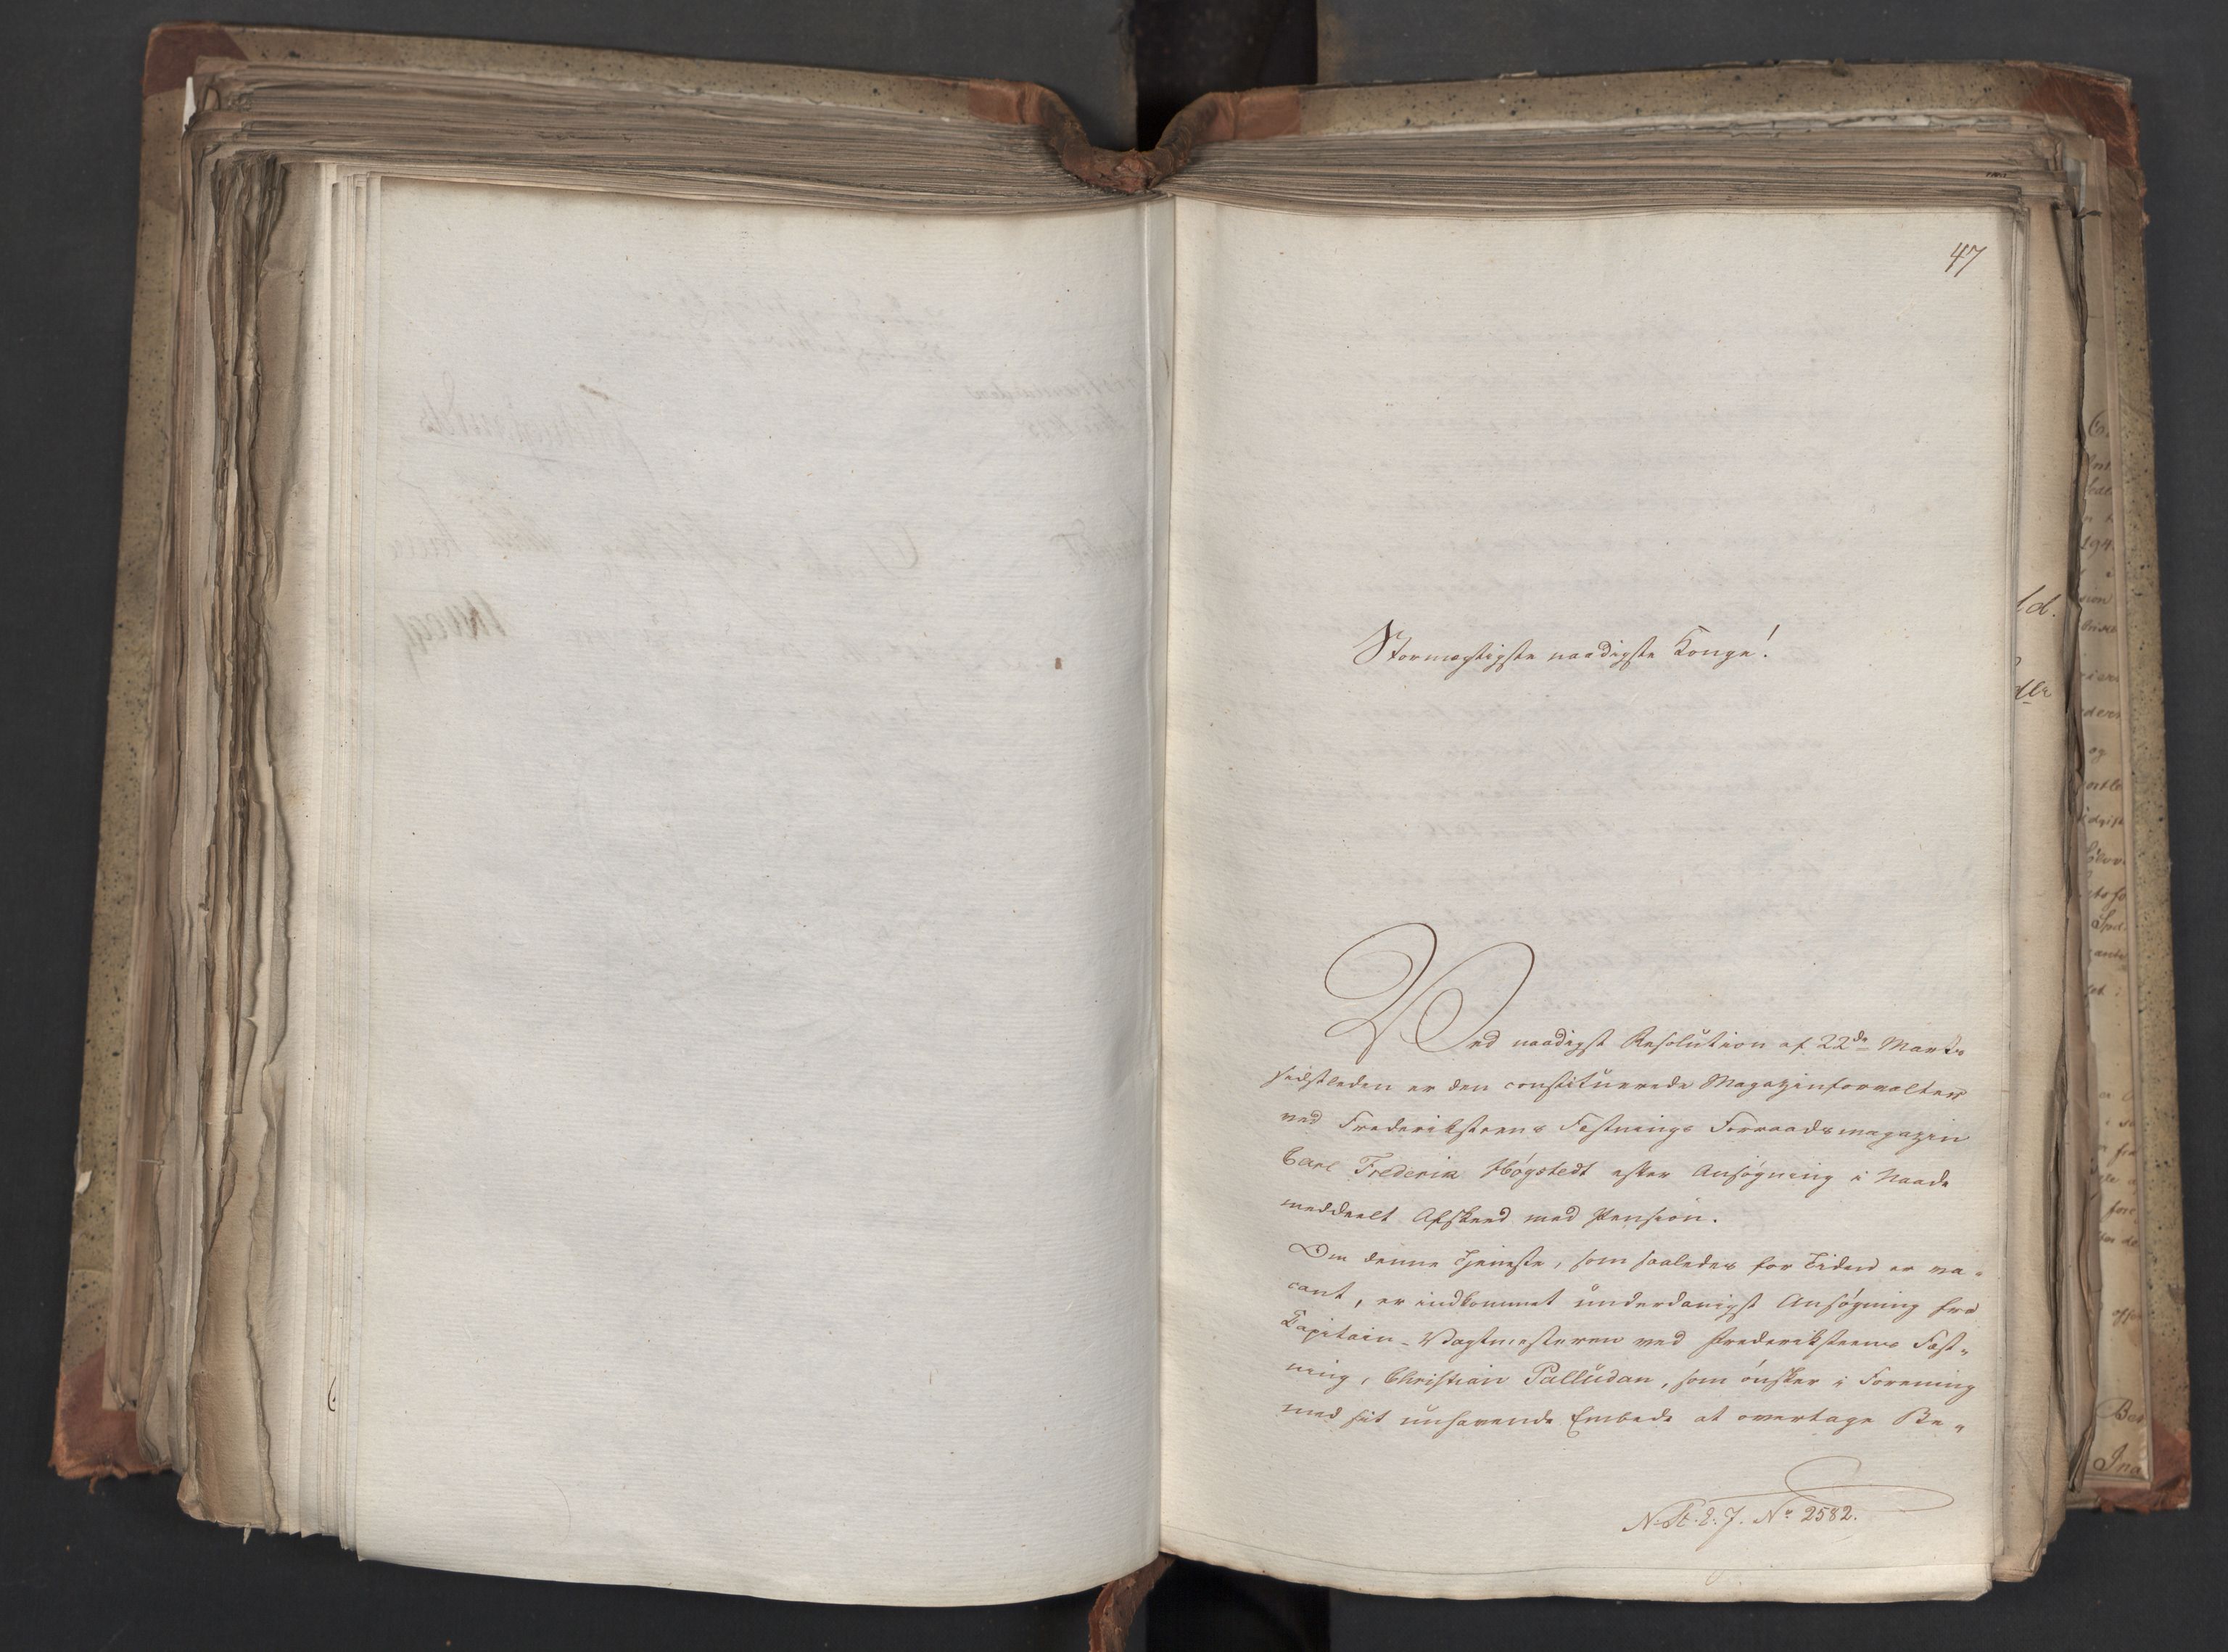 47
Stormægtigste naadigste Konge!
Ved naadigst Resolution af 22de Marts
sidstleden er den constituerede Magazinforvalter
ved Frederiksteens Festnings Forraadsmagazin
Carl Frederik Høgstedt efter Ansøgning i Naade
meddeelt Afskeed med Pension.
Om denne Tjeneste, som saaledes for Tiden er va-
cant, er indkommet underdanigst Ansøgning fra
Capitain-Vagtmesteren ved Frederiksteens Fæst-
ning, Christian Palludan, som ønsker i Forening
med sit nuhavende Embede at overtage Be-
No 2582.